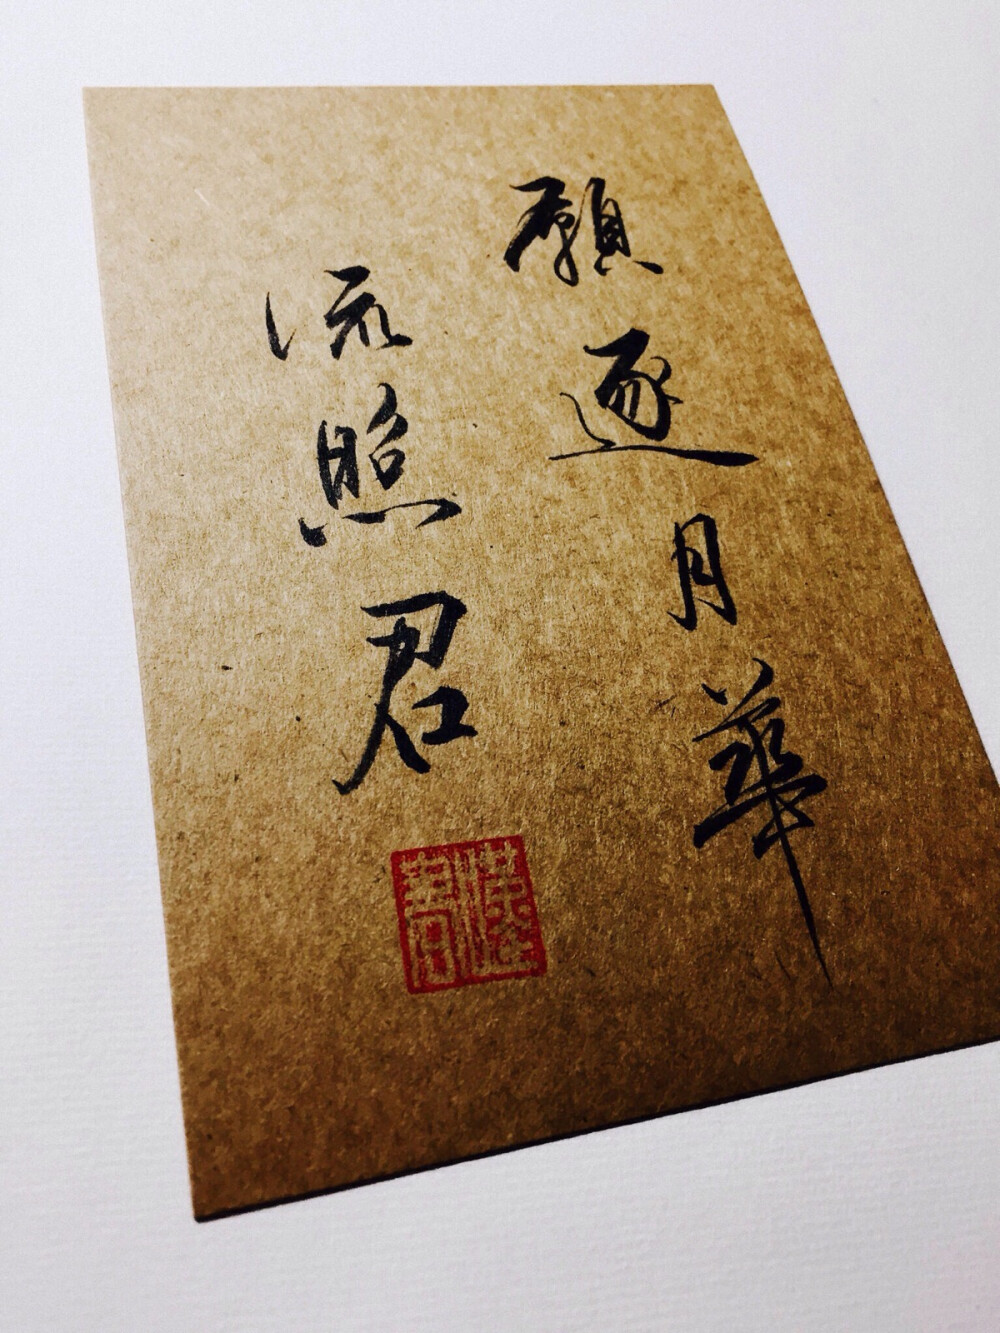 願逐月華
流照君